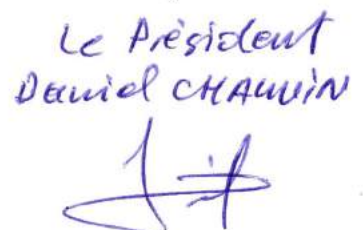 Le Président
Daniel CHAUVIN